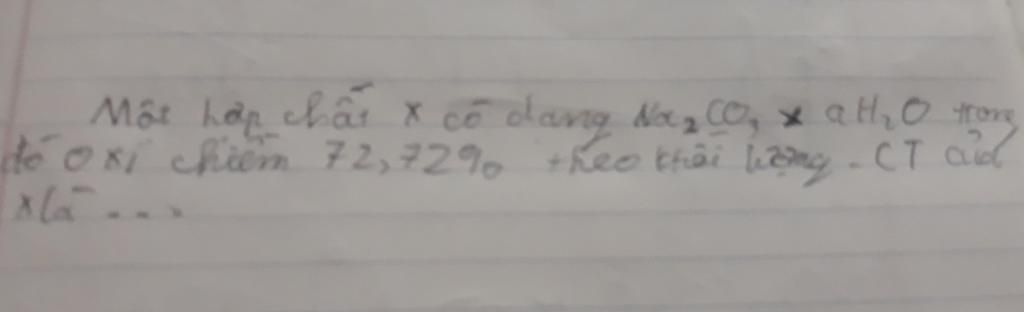 Một hợp chất X có dạng Na₂CO₃ × aH₂O trong
đó oxi chiếm 72,72% theo khối lượng. CT của
X là ...